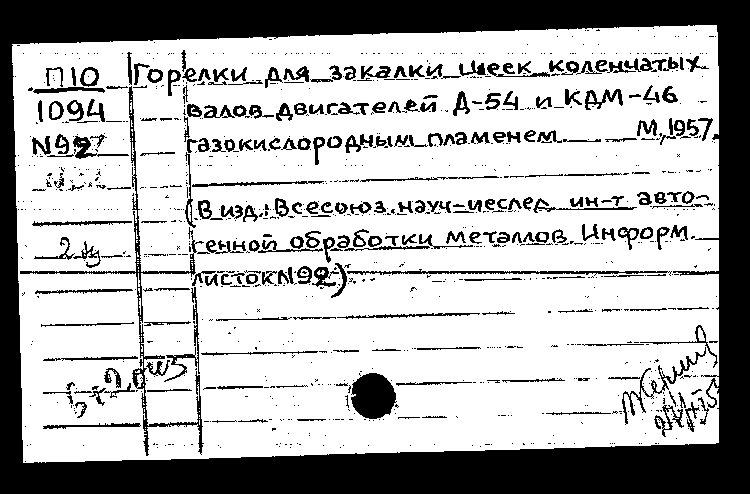 П10 Горелки для закалки шеек коленчатых
1094 валов двигателей Д-54 и КДМ-46
N92 газокислородным пламенем М,1957.
(В изд.: Всесоюз. науч-исслед. ин-т авто-
генной обработки металлов. Информ.
листок N92)